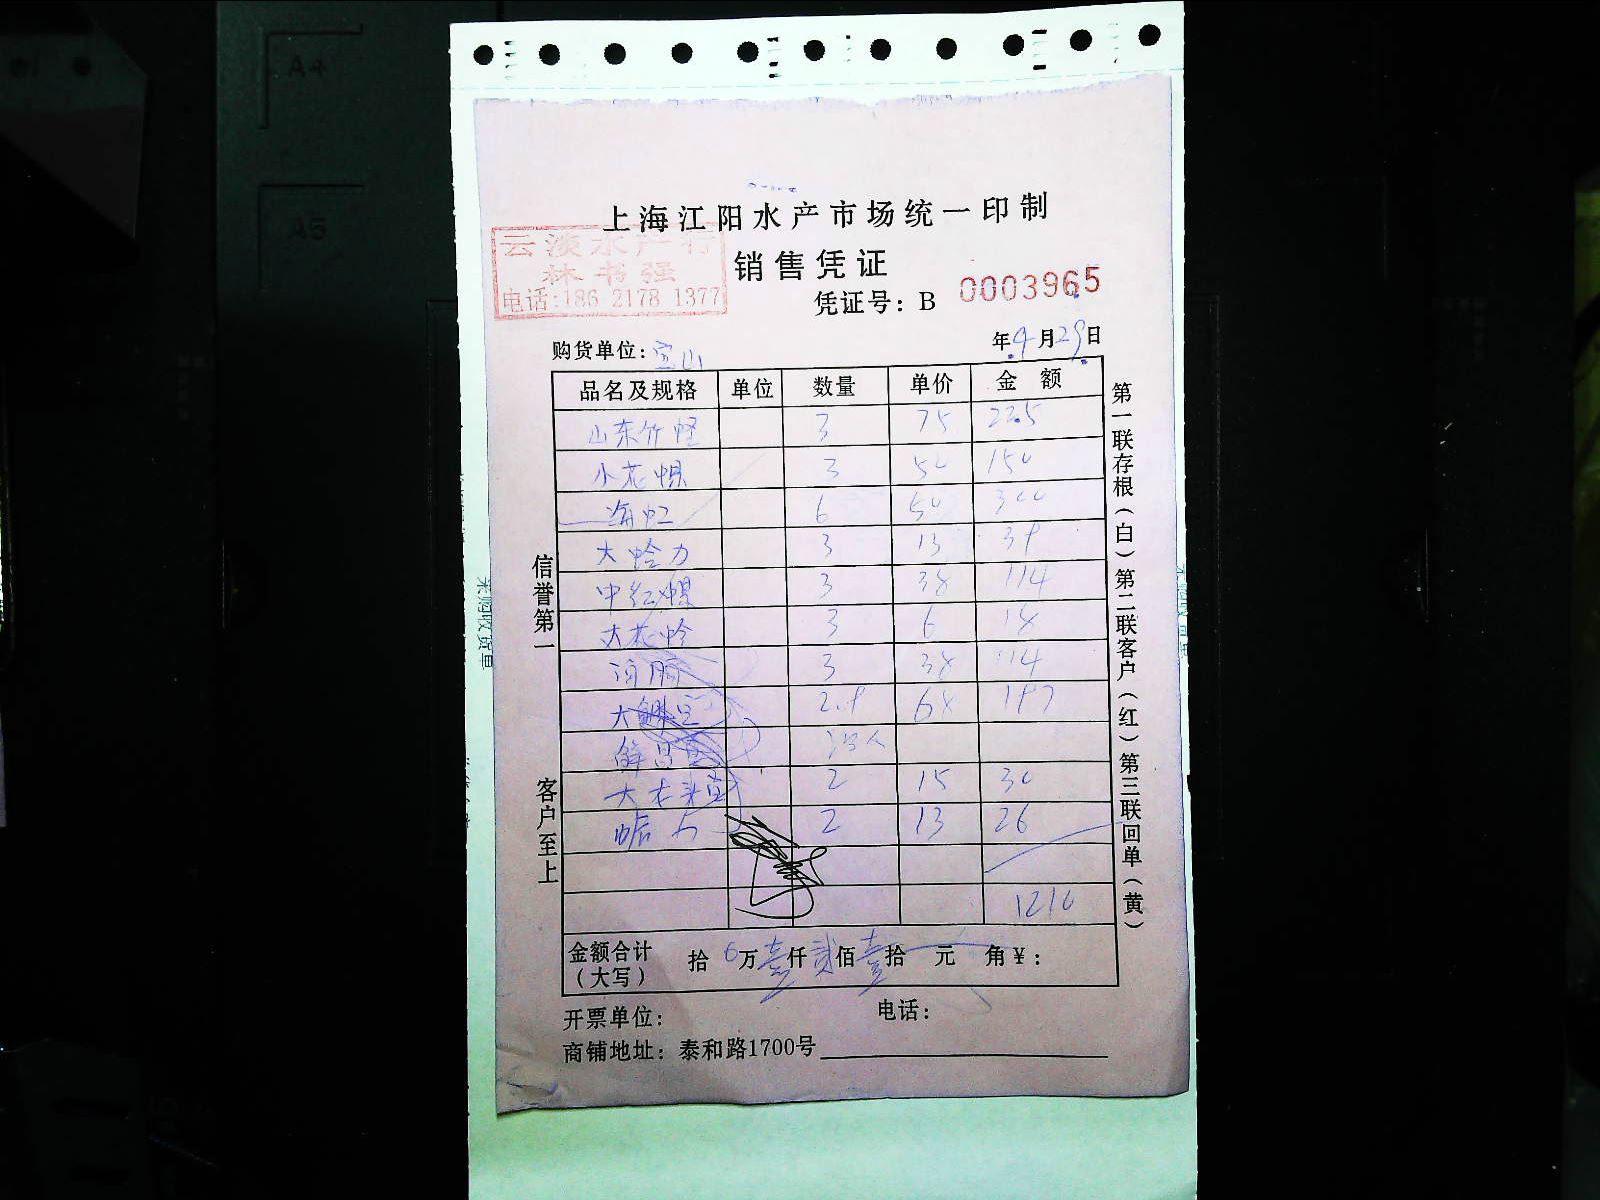 A4
A5
上海江阳水产市场统一印制
云淡水产行
林书强
电话:186 2178 1377
销售凭证
凭证号: B 0003965
购货单位: 宝山 年 4 月 29 日
品名及规格 单位 数量 单价 金额
山东竹蛏 3 75 225
小花螺 3 50 150
海虹 6 50 300
大蛤力 3 13 39
中红螺 3 38 114
大花蛤 3 6 18
河豚 3 38 114
大 2.9 68 197
鲜
大 2 15 30
2 13 26
1210
金额合计(大写) 拾 万 壹 仟 贰 佰 壹 拾 元 角 ¥:
开票单位: 电话:
商铺地址: 泰和路1700号
信誉第一
客户至上
第一联存根(白)第二联客户(红)第三联回单(黄)
采购收货单